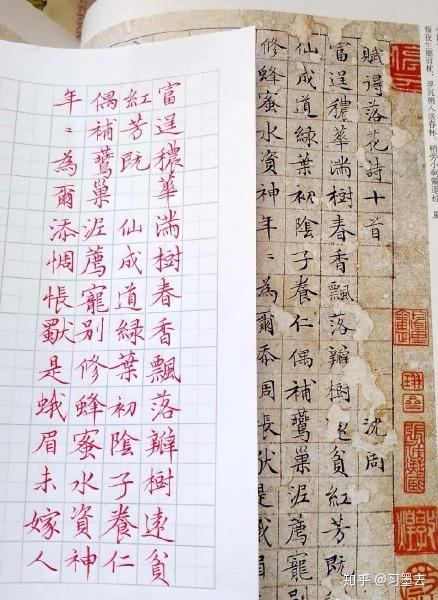 賦得落花詩十首 沈周
富逞穠華滿樹春香飄落瓣樹貧紅芳既
仙成道綠葉初陰子養仁偶補鶯巢泥薦寵別
修蜂蜜水資神年〻為爾添是眉
富逞穠華滿樹春香飄落瓣樹遠貧
紅芳既 仙成道綠葉初陰子養仁
偶補鶯巢泥薦寵別修蜂蜜水資神
年〻為爾添惆悵獃是蛾眉未嫁人
知乎 @习墨去